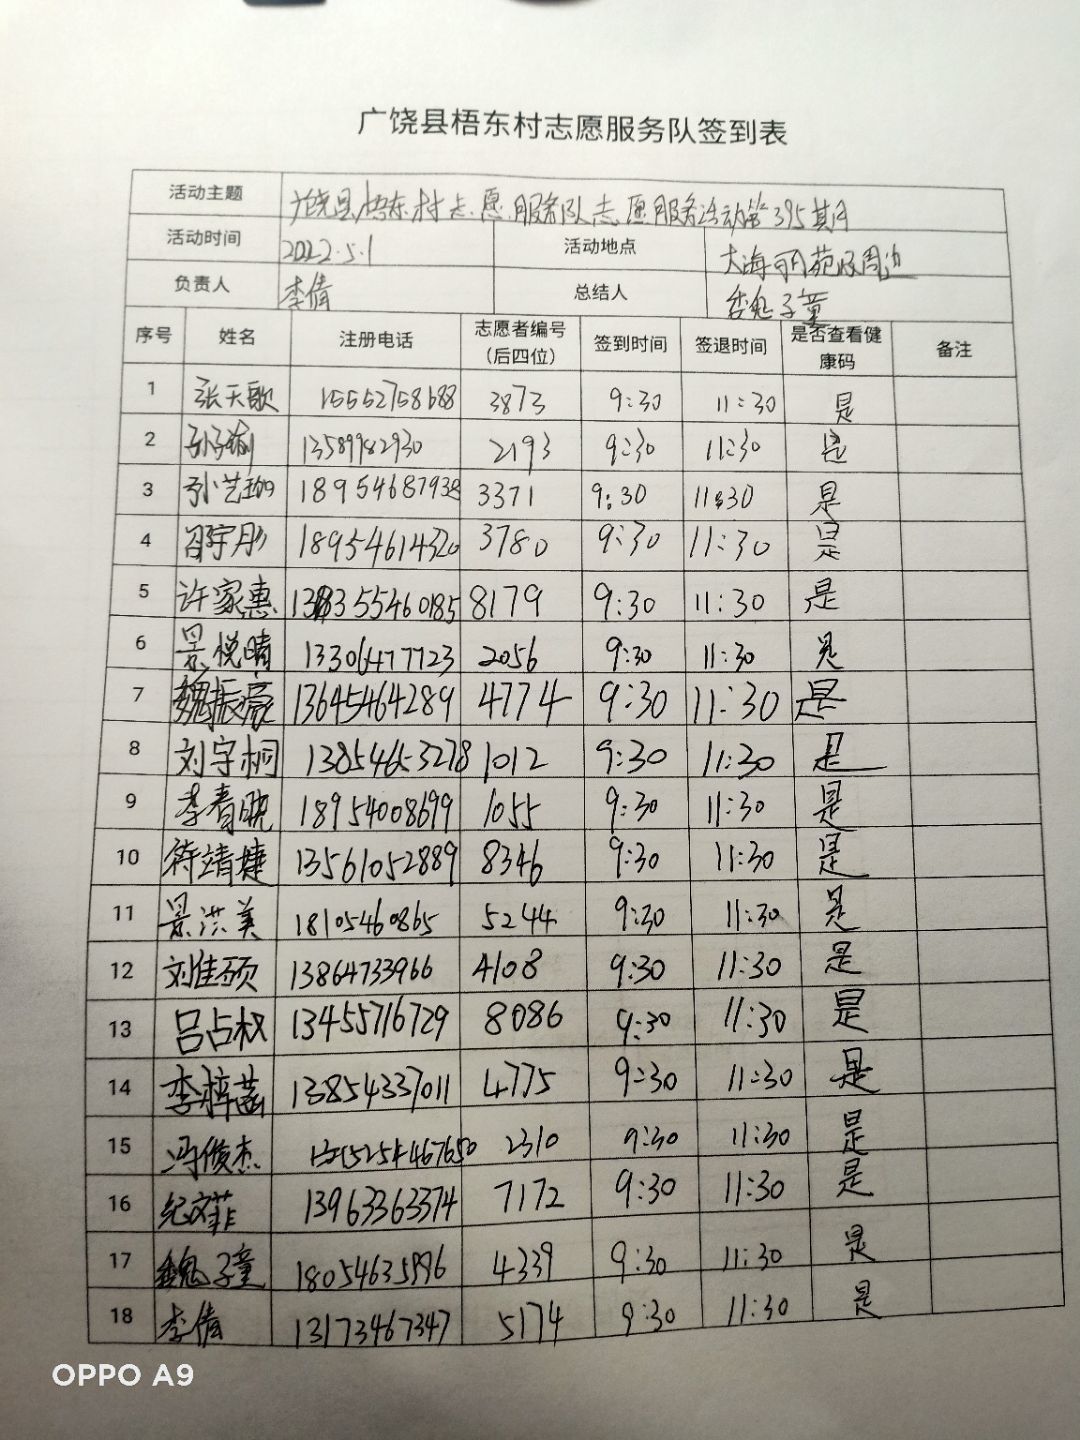 广饶县梧东村志愿服务队签到表
活动主题 广饶县梧东村志愿服务队志愿服务活动第395期
活动时间 2022.5.1 活动地点 大海丽苑及周边
负责人 李倩 总结人 魏子童
序号 姓名 注册电话 志愿者编号（后四位） 签到时间 签退时间 是否查看健康码 备注
1 张天歌 15552758688 3873 9:30 11:30 是
2 13589982930 2193 9:30 11:30 是
3 孙艺珈 18954687938 3371 9:30 11:30 是
4 邵宇彤 18954614320 3780 9:30 11:30 是
5 许家惠 8179 9:30 11:30 是
6 景悦晴 13306477723 2056 9:30 11:30 是
7 魏振豪 13645464289 4774 9:30 11:30 是
8 刘宇桐 13854653278 1012 9:30 11:30 是
9 李春晓 18954008699 1055 9:30 11:30 是
10 符靖婕 13561052889 8346 9:30 11:30 是
11 景洪美 18105460865 5244 9:30 11:30 是
12 刘佳硕 13864733966 4108 9:30 11:30 是
13 吕占权 13455716729 8086 9:30 11:30 是
14 李梓菡 13854337011 4775 9:30 11:30 是
15 冯俊杰 2310 9:30 11:30 是
16 纪文菲 13963363374 7172 9:30 11:30 是
17 魏子童 18054635996 4339 9:30 11:30 是
18 李倩 13173467347 5174 9:30 11:30 是
OPPO A9